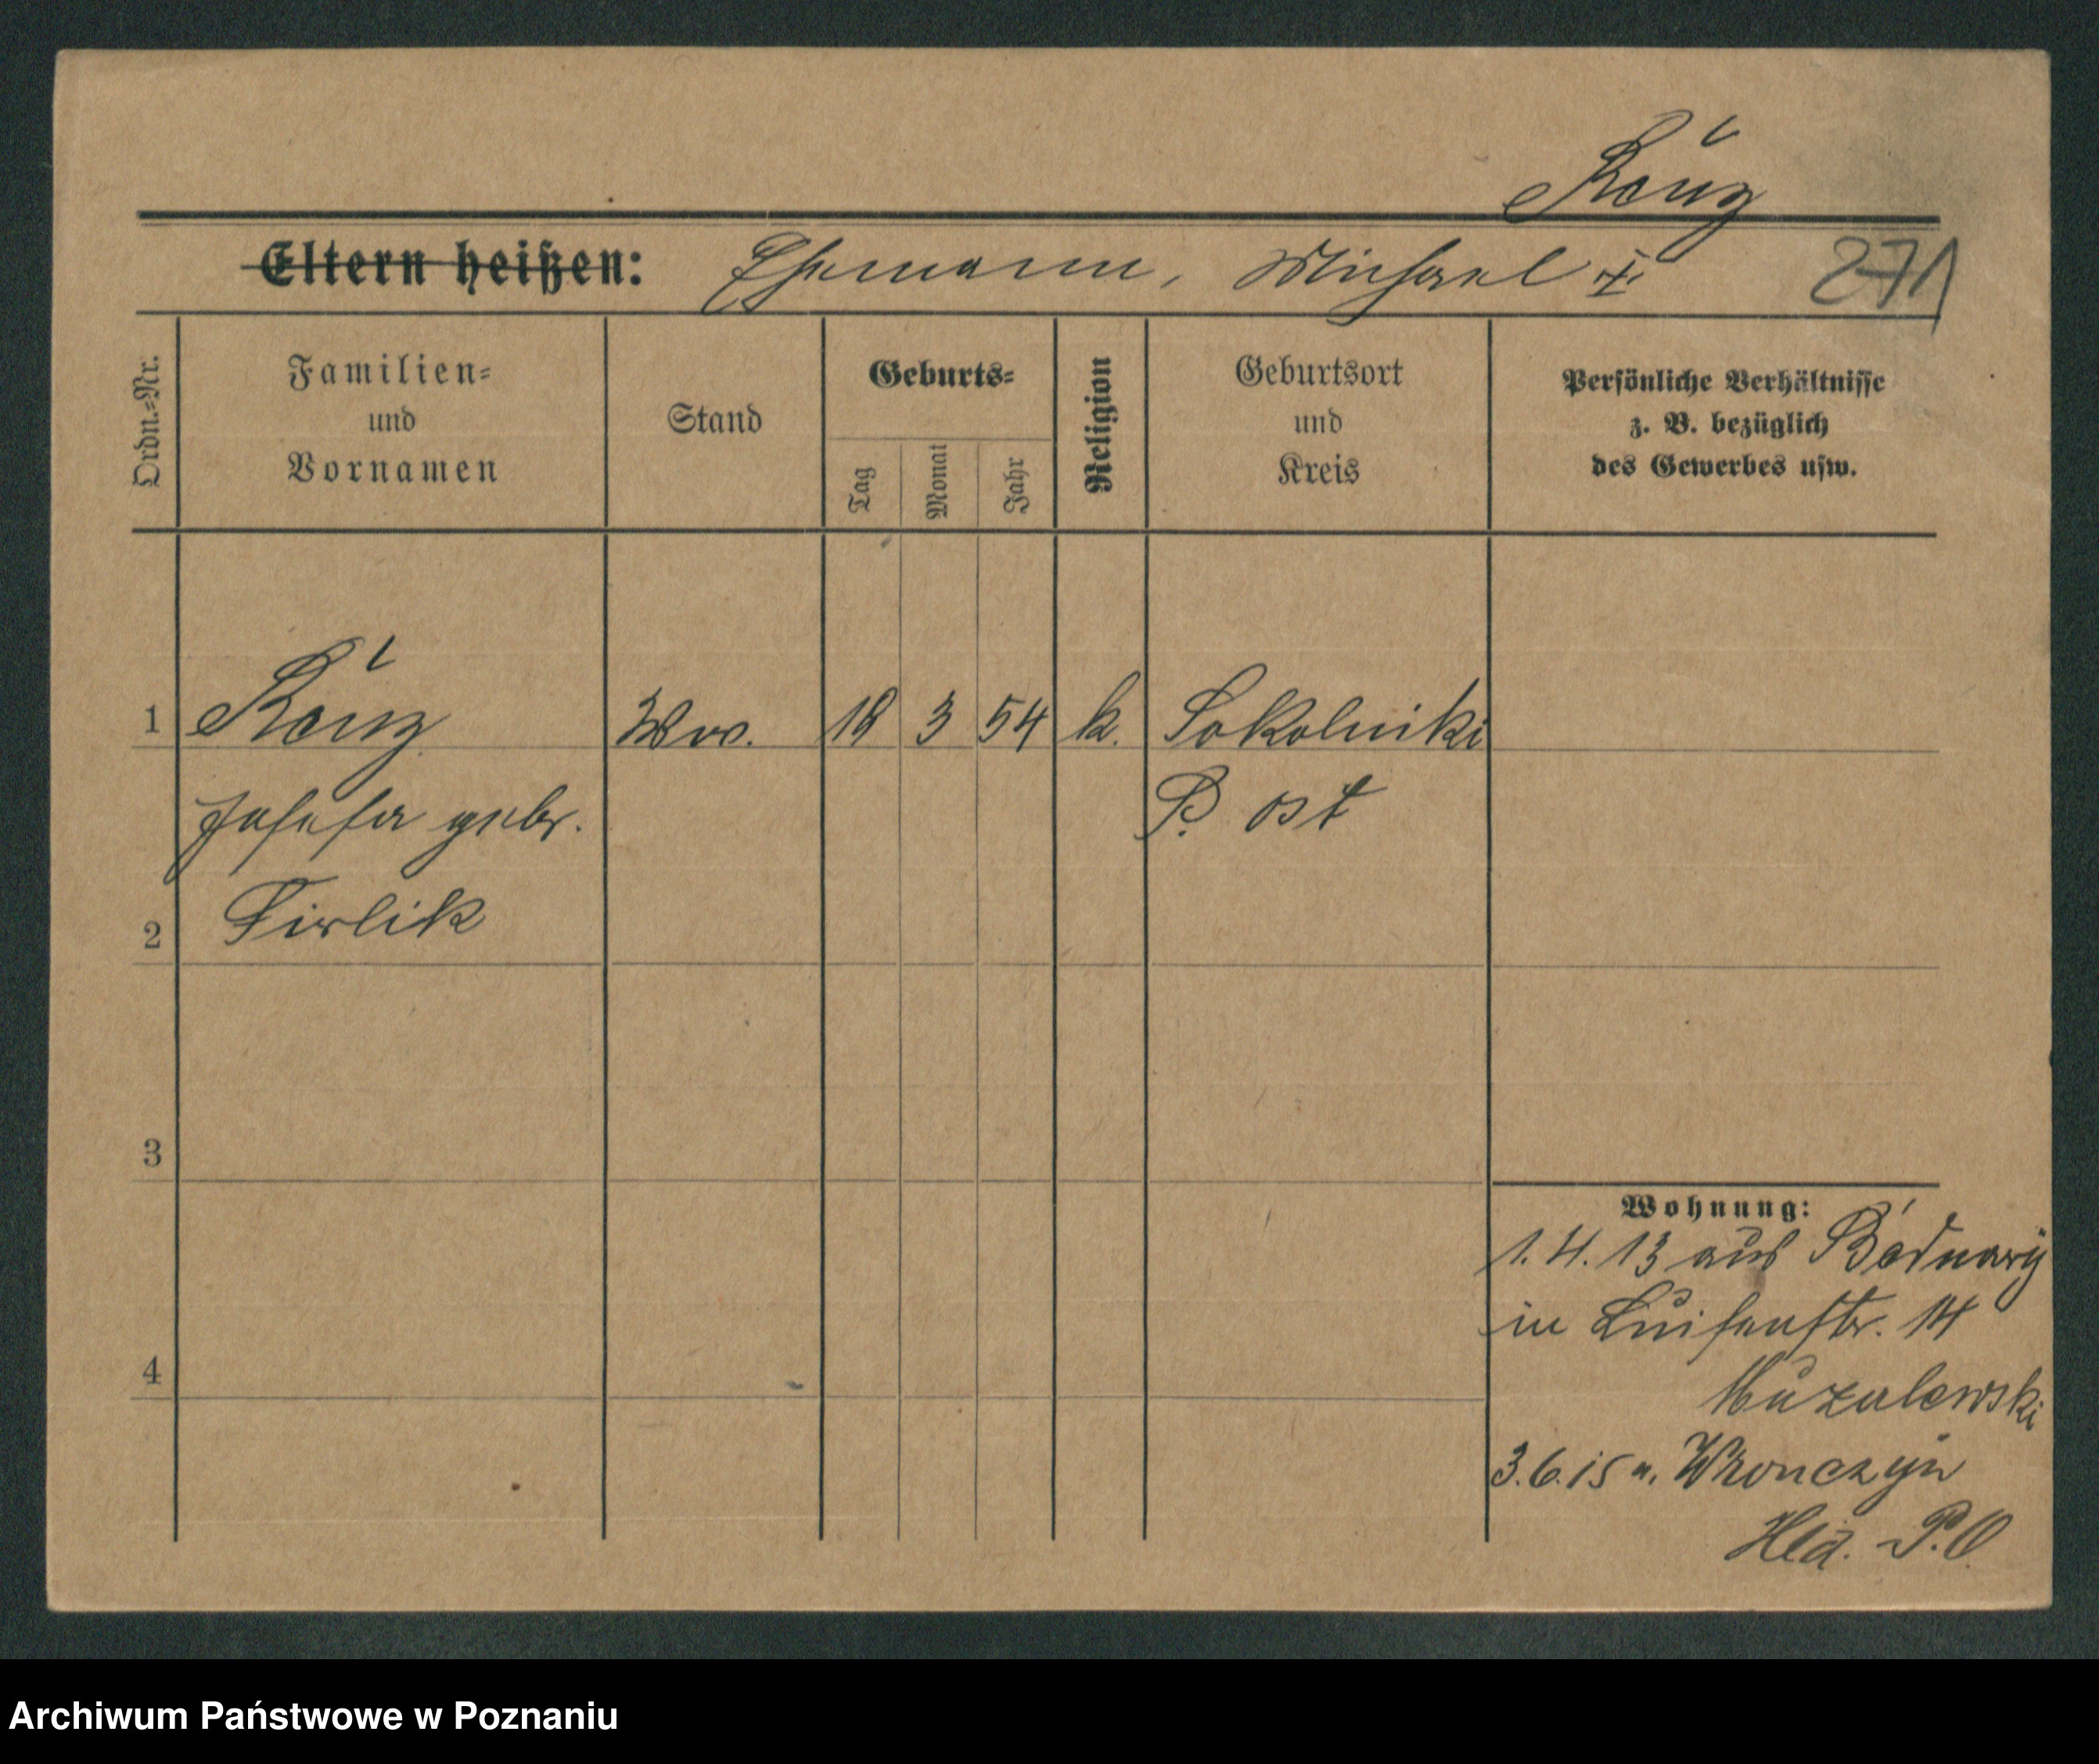 Kouz
Eltern heißen: Ehemann, Michael †
271
Ordn.=Nr.
Familien=
und
Vornamen
Stand
Geburts=
Tag
Monat
Jahr
Religion
Geburtsort
und
Kreis
Persönliche Verhältnisse
z. B. bezüglich
des Gewerbes usw.
1
Ww. 18 3 54 k. Sokolniki
Josefa gebr. P. Ost
2 Firlik
3
Wohnung:
1. 4. 13 aus Bednary
in Luisenstr. 14
4
Muzalewski
3. 6. 15 n. Wronczyn
P. O.
Archiwum Państwowe w Poznaniu